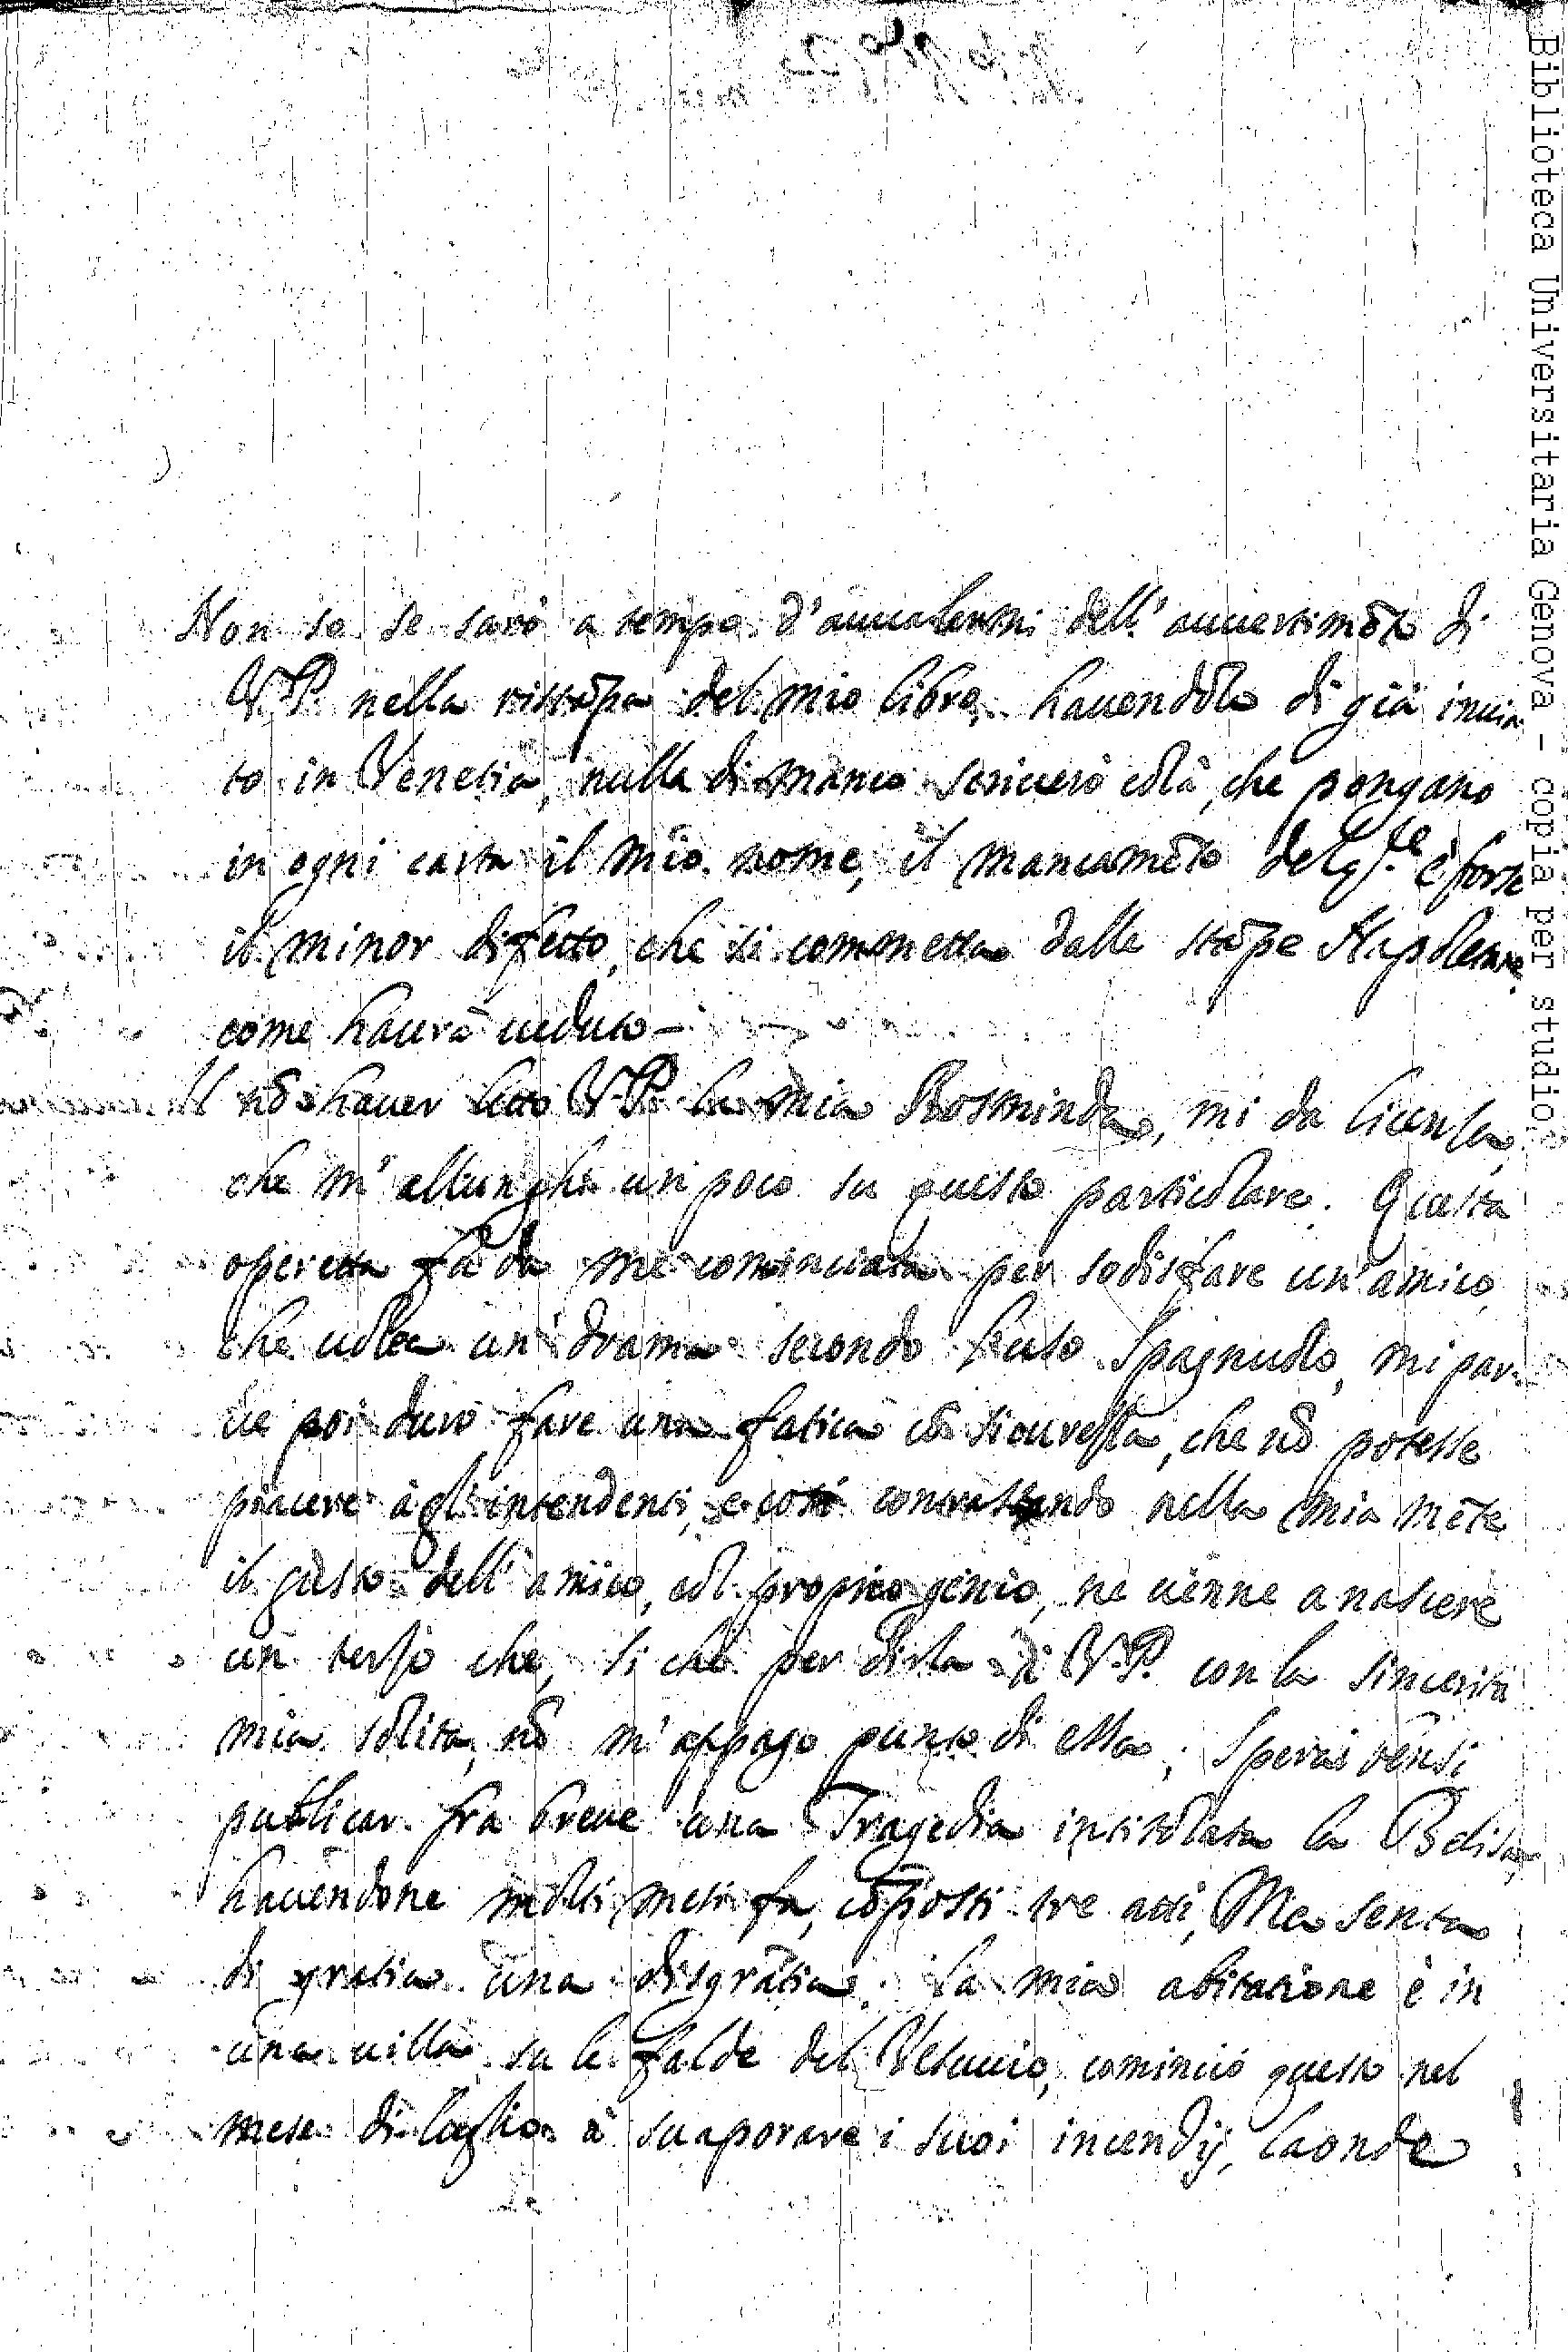 Non so se sarò a tempo d'auualermi dell'auuertimẽto di
V.P. nella ristãpa del mio libro, hauendolo di già inuia
to in Venetia, nulla di manco scriuerò colà, che pongano
in ogni carta il mio nome, il mancamẽto del q.le è forse
il minor difetto, che si commetta dalle stãpe Napolitane
come haurà ueduto—
Il nõ hauer letto V.P. la mia Rosminda, mi da licenza,
che m'allunghi un poco su questo particolare. Questa
operetta fù da me cominciata per sodisfare un'amico,
che uolea un drama secondo l'uso Spagnuolo, mi par-
ue poi duro fare una fatica cõ sicurezza, che nõ potesse
piacere à gl'intendenti, e così contrastando nella mia mẽte
il gusto dell'amico, col proprio genio, ne uenne a nascere
un terzo che, si che per dirla à V.P. con la sincerità
mia solita, nõ m'appago punto di essa. Speraua
publicar fra breue una Tragedia intitolata la Belisa,
hauendone molti mesi fa, cõposti tre atti, Ma senta
di gratia una disgratia. La mia abitatione è in
una uilla su le falde del Vesuuio, cominciò questo nel
mese di luglio à suaporare i suoi incendij, laonde
Biblioteca Universitaria Genova - copia per studio.